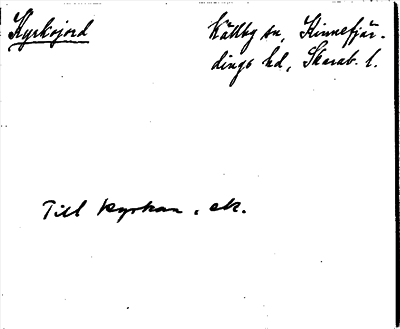 Kyrkojord
Källby sn, Kinnefjär-
dings hd, Skarab. l.
Till kyrkan, ek.